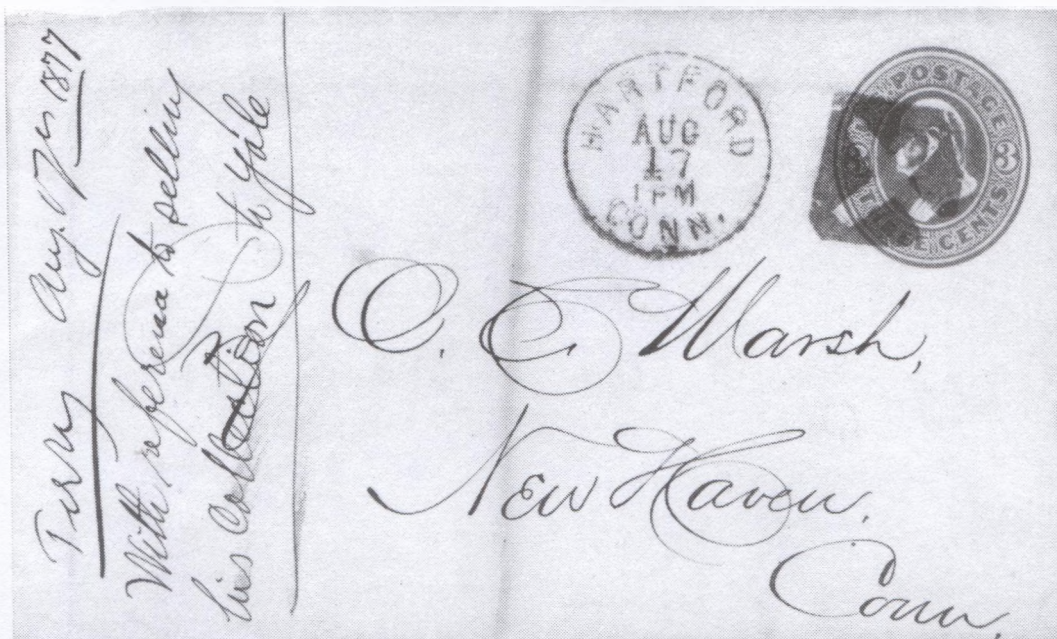 Terry Aug. 17 1877
With reference to selling
his Collection to Yale
HARTFORD
AUG
17
1 PM
CONN.
POSTAGE
3 3
THREE CENTS
O. C. Marsh,
New Haven,
Conn.